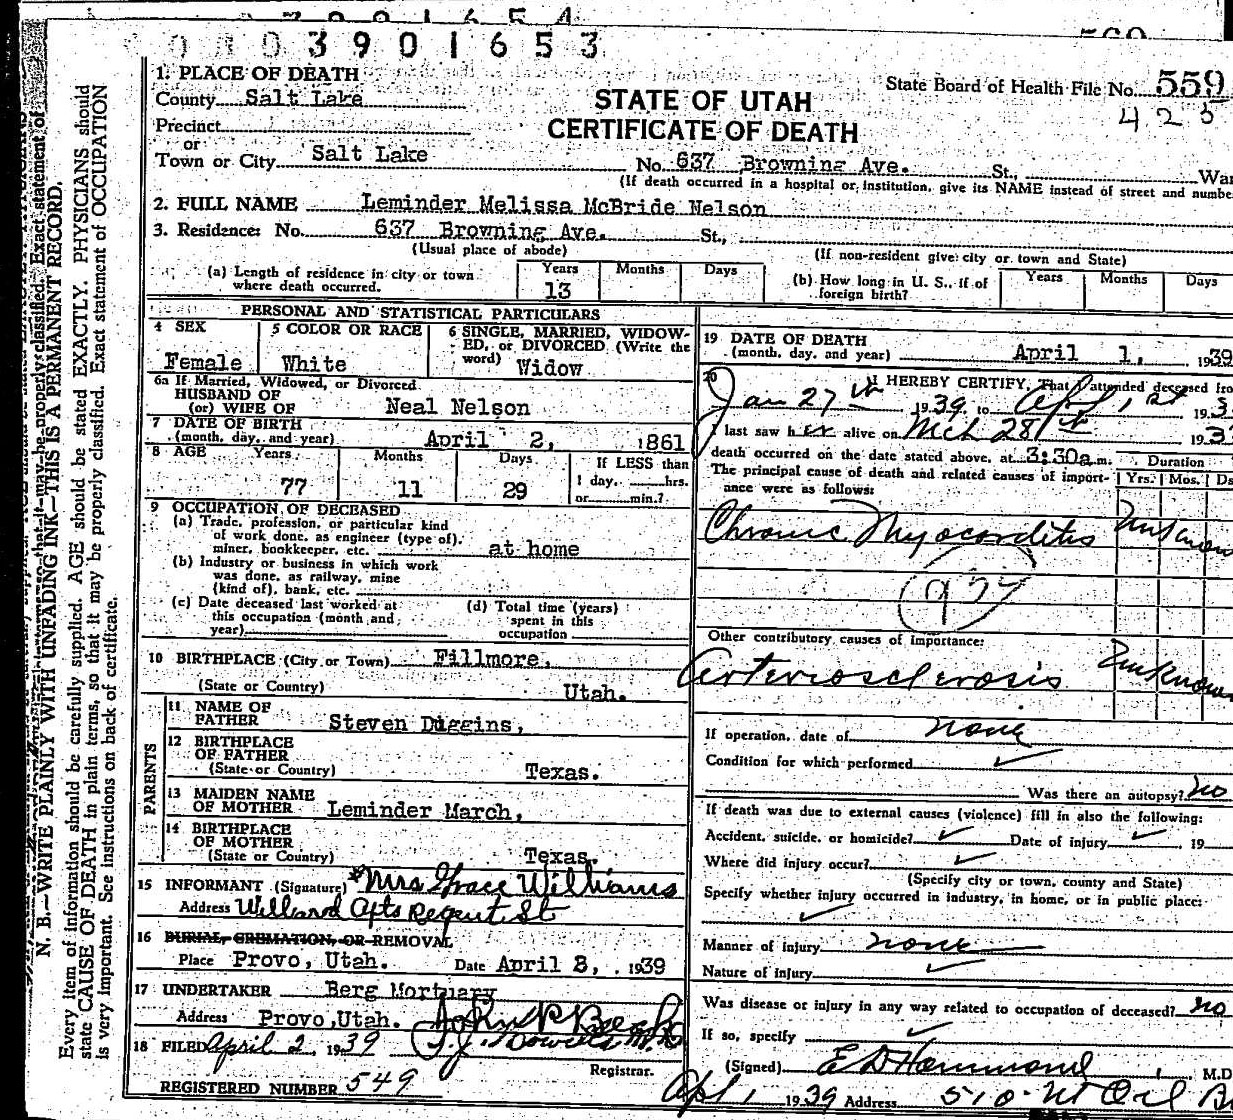 0003901653
1. PLACE OF DEATH
County Salt Lake
Precinct
or
Town or City Salt Lake
STATE OF UTAH
CERTIFICATE OF DEATH
State Board of Health File No. 559
425
No. 637 Browning Ave. St., War
(If death occurred in a hospital or institution, give its NAME instead of street and numbe
2. FULL NAME Leminder Melissa McBride Nelson
3. Residence: No. 637 Browning Ave. St.,
(Usual place of abode) (If non-resident give city or town and State)
(a) Length of residence in city or town where death occurred. Years 13 Months Days
(b) How long in U. S., if of foreign birth? Years Months Days
PERSONAL AND STATISTICAL PARTICULARS
4 SEX Female
5 COLOR OR RACE White
6 SINGLE, MARRIED, WIDOW-
ED, or DIVORCED (Write the
word) Widow
6a If Married, Widowed, or Divorced
HUSBAND OF
(or) WIFE OF Neal Nelson
7 DATE OF BIRTH
(month, day, and year) April 2, 1861
8 AGE Years 77 Months 11 Days 29
If LESS than
1 day, hrs.
or min.?
9 OCCUPATION OF DECEASED
(a) Trade, profession, or particular kind
of work done, as engineer (type of),
miner, bookkeeper, etc. at home
(b) Industry or business in which work
was done, as railway, mine
(kind of), bank, etc.
(c) Date deceased last worked at
this occupation (month and
year)
(d) Total time (years)
spent in this
occupation
10 BIRTHPLACE (City or Town) Fillmore,
(State or Country) Utah.
PARENTS
11 NAME OF
FATHER Steven Diggins,
12 BIRTHPLACE
OF FATHER
(State or Country) Texas.
13 MAIDEN NAME
OF MOTHER Leminder March,
14 BIRTHPLACE
OF MOTHER
(State or Country) Texas.
15 INFORMANT (Signature) Mrs Grace Williams
Address Willard Apts Regent St
16 BURIAL, CREMATION, OR REMOVAL
Place Provo, Utah. Date April 3, 1939
17 UNDERTAKER Berg Mortuary
Address Provo, Utah.
18 FILED April 2 1939
Registrar.
REGISTERED NUMBER 549
19 DATE OF DEATH
(month, day, and year) April 1, 1939
20 I HEREBY CERTIFY, That I attended deceased fro
Jan 27th 1939 to Apl 1st 193
I last saw her alive on Mch 28th 193
death occurred on the date stated above, at 3:30a m.
The principal cause of death and related causes of import-
ance were as follows:
Duration
Yrs. Mos. Ds
Chronic Myocarditis Unknown
Other contributory causes of importance:
Arteriosclerosis Unknown
If operation, date of none
Condition for which performed
Was there an autopsy? no
If death was due to external causes (violence) fill in also the following:
Accident, suicide, or homicide? Date of injury 19
Where did injury occur?
(Specify city or town, county and State)
Specify whether injury occurred in industry, in home, or in public place:
Manner of injury none
Nature of injury
Was disease or injury in any way related to occupation of deceased? no
If so, specify
(Signed) E D Hammond, M.D
Apl 1 1939 Address
N. B.—WRITE PLAINLY WITH UNFADING INK—THIS IS A PERMANENT RECORD.
Every item of information should be carefully supplied. AGE should be stated EXACTLY. PHYSICIANS should
state CAUSE OF DEATH in plain terms, so that it may be properly classified. Exact statement of OCCUPATION
is very important. See instructions on back of certificate.